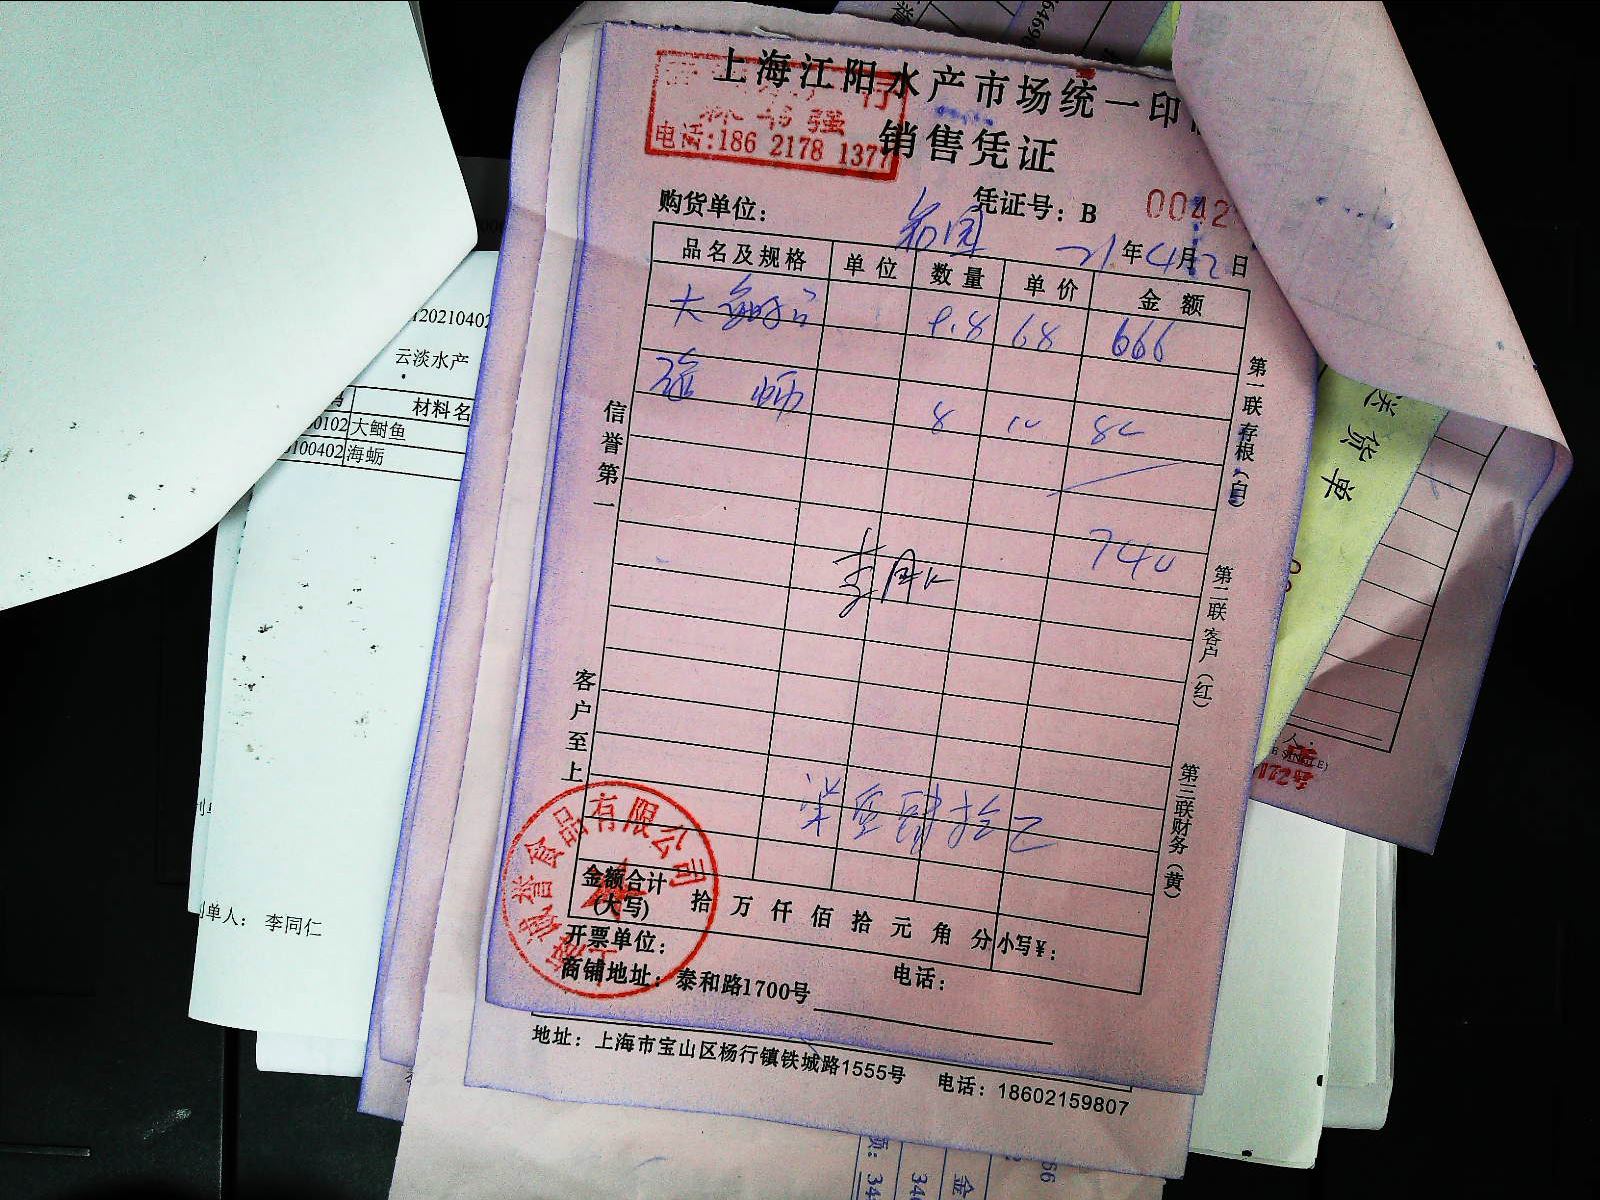 上海江阳水产市场统一印
销售凭证
强
电话:186 2178 1377
购货单位:
凭证号: B 0042
21年4月2日
品名及规格 单位 数量 单价 金额
大 9.8 68 666
8 10 82
740
柒佰肆拾
信誉第一
客户至上
第一联存根(白)
第二联客户(红)
第三联财务(黄)
金额合计
(大写)
拾 万 仟 佰 拾 元 角 分 小写¥:
开票单位:
电话:
商铺地址: 泰和路1700号
诚誉食品有限公司
地址: 上海市宝山区杨行镇铁城路1555号 电话: 18602159807
20210402
云淡水产
材料名
0102 大鲥鱼
100402 海蛎
单人: 李同仁
送货单